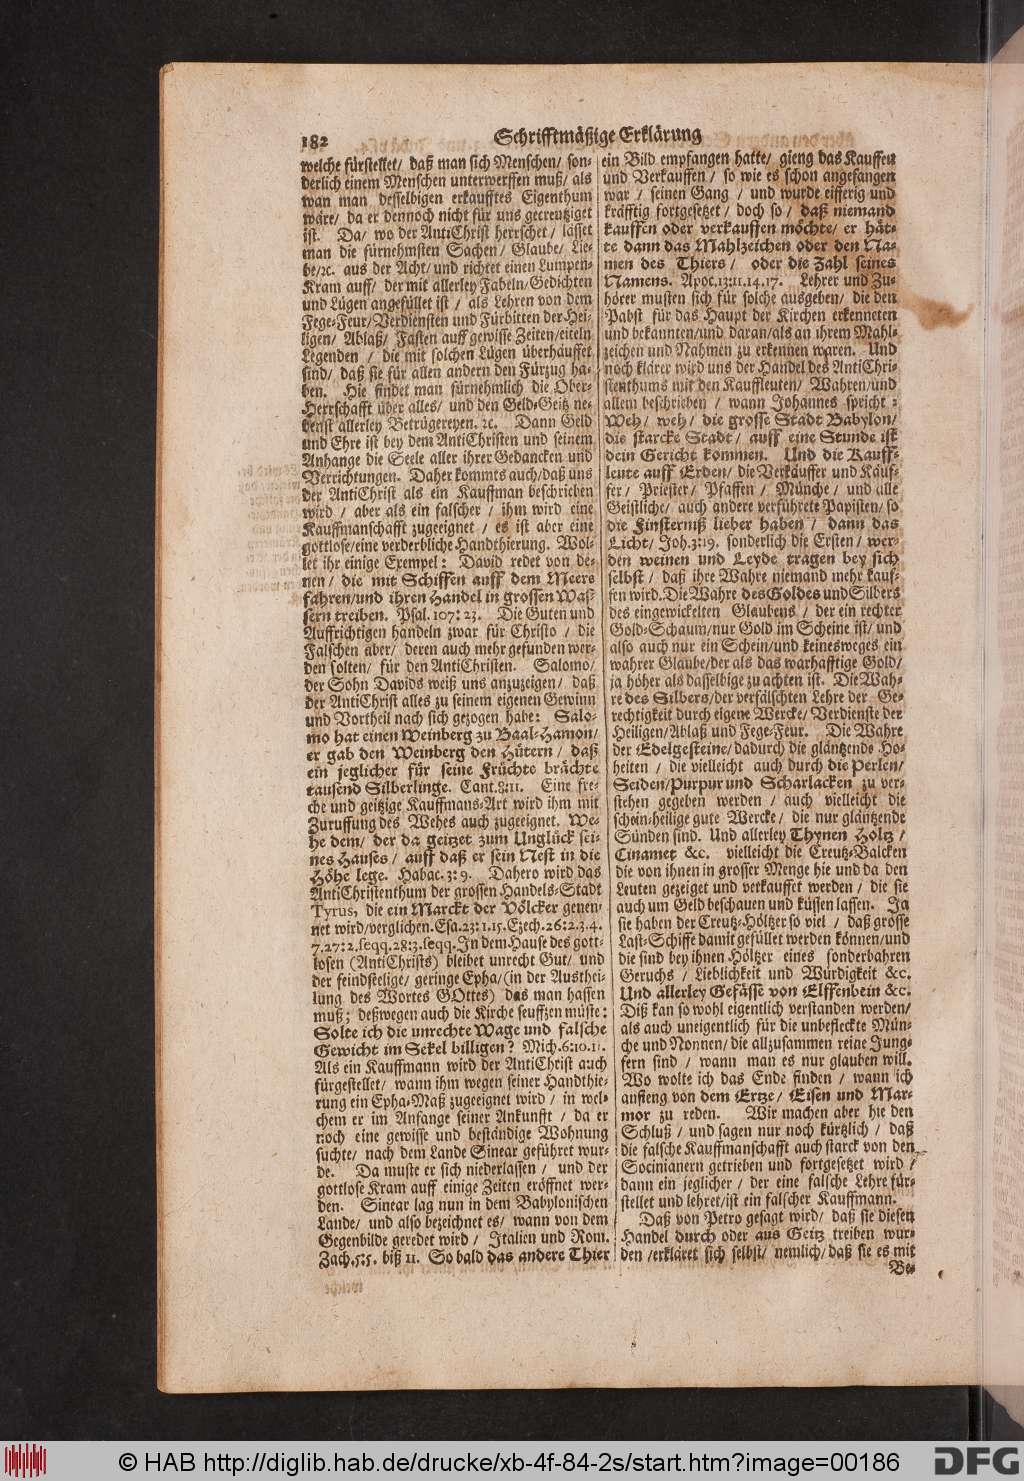 182 Schrifftmäßige Erklärung
welche fürstellet/ daß man sich Menschen/ son-
derlich einem Menschen unterwerffen muß/ als
wan man desselbigen erkaufftes Eigenthum
wäre/ da er dennoch nicht für uns gecreutziget
ist. Da/ wo der AntiChrist herrschet/ lässet
man die fürnehmsten Sachen/ Glaube/ Lie-
be/ꝛc. aus der Acht/ und richtet einen Lumpen-
Kram auff/ der mit allerley Fabeln/ Gedichten
und Lügen angefüllet ist / als Lehren von dem
Fege-Feur/ Verdiensten und Fürbitten der Hei-
ligen/ Ablaß/ Fasten auff gewisse Zeiten/ eiteln
Legenden / die mit solchen Lügen überhäuffet
sind/ daß sie für allen andern den Fürzug ha-
ben. Hie findet man fürnehmlich die Ober-
Herrschafft über alles/ und den Geld-Geitz ne-
benst allerley Betrügereyen. ꝛc. Dann Geld
und Ehre ist bey dem AntiChristen und seinem
Anhange die Seele aller ihrer Gedancken und
Verrichtungen. Daher kommts auch/ daß uns
der AntiChrist als ein Kauffman beschrieben
wird / aber als ein falscher / ihm wird eine
Kauffmanschafft zugeeignet / es ist aber eine
gottlose/ eine verderbliche Handthierung. Wol-
let ihr einige Exempel: David redet von de-
nen/ die mit Schiffen auff dem Meere
fahren/ und ihren Handel in grossen Was-
sern treiben. Psal. 107: 23. Die Guten und
Auffrichtigen handeln zwar für Christo / die
Falschen aber/ deren auch mehr gefunden wer-
den solten/ für den AntiChristen. Salomo/
der Sohn Davids weiß uns anzuzeigen/ daß
der AntiChrist alles zu seinem eigenen Gewinn
und Vortheil nach sich gezogen habe: Salo-
mo hat einen Weinberg zu Baal-Hamon/
er gab den Weinberg den Hütern / daß
ein jeglicher für seine Früchte brächte
tausend Silberlinge. Cant. 8:11. Eine fre-
che und geitzige Kauffmans-Art wird ihm mit
Zuruffung des Wehes auch zugeeignet. We-
he dem/ der da geitzet zum Unglück sei-
nes Hauses / auff daß er sein Nest in die
Höhe lege. Habac. 3: 9. Dahero wird das
AntiChristenthum der grossen Handels-Stadt
Tyrus, die ein Marckt der Völcker genen-
net wird/ verglichen. Esa. 23: 1. 15. Ezech. 26: 2. 3. 4.
7. 27: 2. seqq. 28: 3. seqq. In dem Hause des gott-
losen (AntiChrists) bleibet unrecht Gut/ und
der feindseelige/ geringe Epha/ (in der Austhei-
lung des Wortes GOttes) das man hassen
muß; deßwegen auch die Kirche seuffzen müste:
Solte ich die unrechte Wage und falsche
Gewicht im Sekel billigen? Mich. 6: 10. 11.
Als ein Kauffmann wird der AntiChrist auch
fürgestellet/ wann ihm wegen seiner Handthie-
rung ein Epha-Maß zugeeignet wird / in wel-
chem er im Anfange seiner Ankunfft / da er
noch eine gewisse und beständige Wohnung
suchte/ nach dem Lande Sinear geführet wur-
de. Da muste er sich niederlassen / und der
gottlose Kram auff einige Zeiten eröffnet wer-
den. Sinear lag nun in dem Babylonischen
Lande/ und also bezeichnet es/ wann von dem
Gegenbilde geredet wird / Italien und Rom.
Zach. 5: 5. biß 11. So bald das andere Thier
ein Bild empfangen hatte/ gieng das Kauffen
und Verkauffen / so wie es schon angefangen
war / seinen Gang / und wurde eifferig und
kräfftig fortgesetzet / doch so / daß niemand
kauffen oder verkauffen möchte/ er hät-
te dann das Mahlzeichen oder den Na-
men des Thiers / oder die Zahl seines
Namens. Apoc. 13: 11. 14. 17. Lehrer und Zu-
hörer musten sich für solche ausgeben/ die den
Pabst für das Haupt der Kirchen erkenneten
und bekannten/ und daran/ als an ihrem Mahl-
zeichen und Nahmen zu erkennen waren. Und
noch klärer wird uns der Handel des AntiChri-
stenthums mit den Kauffleuten/ Wahren/ und
allem beschrieben / wann Johannes spricht:
Weh/ weh/ die grosse Stadt Babylon/
die starcke Stadt/ auff eine Stunde ist
dein Gericht kommen. Und die Kauff-
leute auff Erden/ die Verkäuffer und Käuf-
fer/ Priester/ Pfaffen / Münche / und alle
Geistliche/ auch andere verführete Papisten/ so
die Finsterniß lieber haben / dann das
Licht/ Joh. 3: 19. sonderlich die Ersten/ wer-
den weinen und Leyde tragen bey sich
selbst / daß ihre Wahre niemand mehr kauf-
fen wird. Die Wahre des Goldes und Silbers
des eingewickelten Glaubens / der ein rechter
Gold-Schaum/ nur Gold im Scheine ist/ und
also auch nur ein Schein/ und keinesweges ein
wahrer Glaube/ der als das warhafftige Gold/
ja höher als dasselbige zu achten ist. Die Wah-
re des Silbers/ der verfälschten Lehre der Ge-
rechtigkeit durch eigene Wercke/ Verdienste der
Heiligen/ Ablaß und Fege-Feur. Die Wahre
der Edelgesteine/ dadurch die gläntzende Ho-
heiten / die vielleicht auch durch die Perlen/
Seiden/ Purpur und Scharlacken zu ver-
stehen gegeben werden / auch vielleicht die
schein-heilige gute Wercke/ die nur gläntzende
Sünden sind. Und allerley Thynen Holtz /
Cinamet &c. vielleicht die Creutz-Balcken
die von ihnen in grosser Menge hie und da den
Leuten gezeiget und verkauffet werden / die sie
auch um Geld beschauen und küssen lassen. Ja
sie haben der Creutz-Höltzer so viel / daß grosse
Last-Schiffe damit gefüllet werden können/ und
die sind bey ihnen Höltzer eines sonderbahren
Geruchs / Lieblichkeit und Würdigkeit &c.
Und allerley Gefässe von Elffenbein &c.
Diß kan so wohl eigentlich verstanden werden/
als auch uneigentlich für die unbefleckte Mün-
che und Nonnen/ die allzusammen reine Jung-
fern sind / wann man es nur glauben will.
Wo wolte ich das Ende finden / wann ich
anfieng von dem Ertze/ Eisen und Mar-
mor zu reden. Wir machen aber hie den
Schluß / und sagen nur noch kürtzlich / daß
die falsche Kauffmanschafft auch starck von den
Socinianern getrieben und fortgesetzet wird /
dann ein jeglicher / der eine falsche Lehre für-
stellet und lehret/ ist ein falscher Kauffmann.
Daß von Petro gesagt wird/ daß sie diesen
Handel durch oder aus Geitz treiben wür-
den / erkläret sich selbst/ nemlich/ daß sie es mit
Be-
© HAB http://diglib.hab.de/drucke/xb-4f-84-2s/start.htm?image=00186
DFG